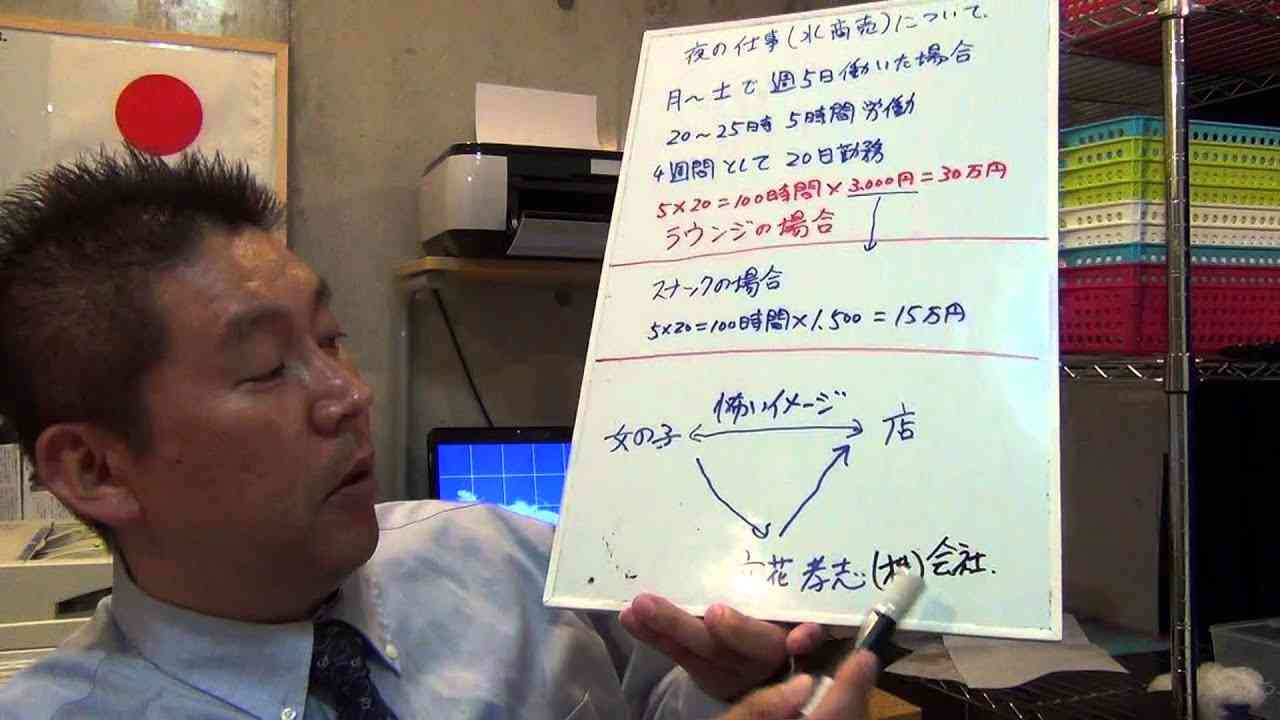 夜の仕事(水商売)について.
月～土で週5日働いた場合
20～25時 5時間労働
4週間として 20日勤務
5×20=100時間×3.000円=30万円
ラウンジの場合
スナックの場合
5×20=100時間×1.500=15万円
怖いイメージ
女の子 店
花孝志(株)会社.